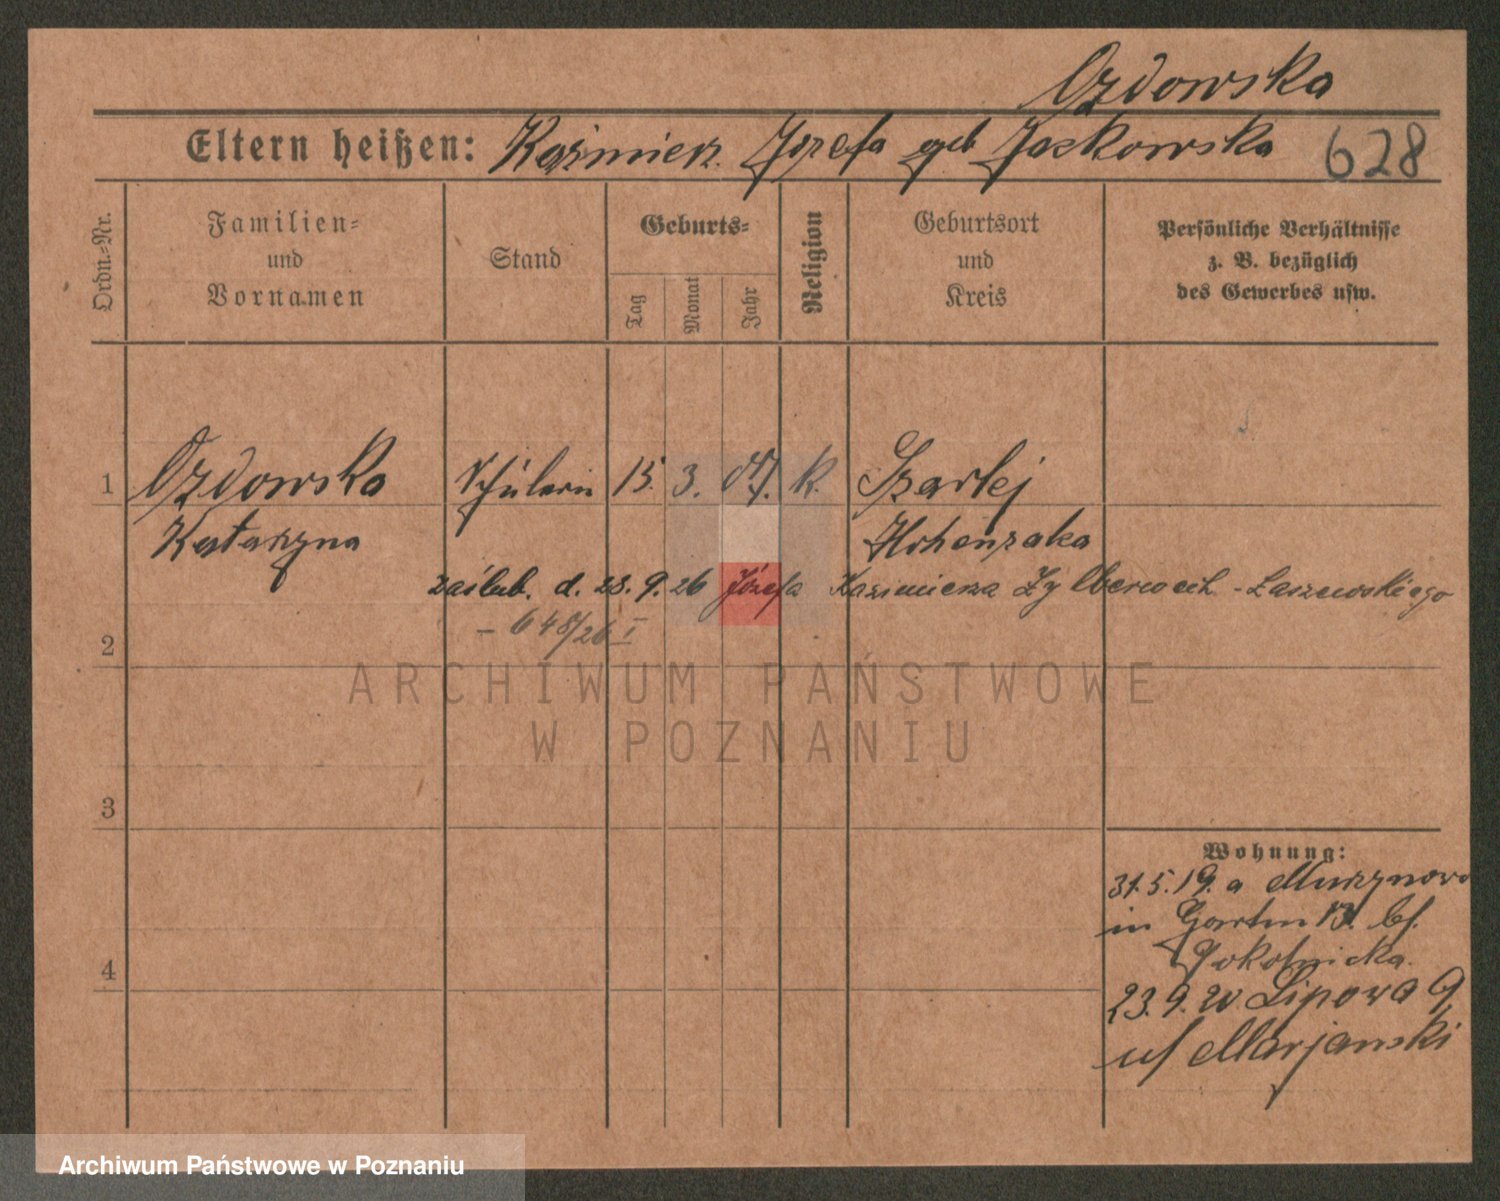 Ozdowska
Eltern heißen: Kazimierz. Jozefa geb Jackowska 628
Ordn.-Nr.
Familien-
und
Vornamen
Stand
Geburts-
Tag
Monat
Jahr
Religion
Geburtsort
und
Kreis
Persönliche Verhältnisse
z. B. bezüglich
des Gewerbes usw.
1 Ozdowska Schülerin 15. 3. 07. k. Szarlej
Katarzyna Hohensalza
zaślub. d. 28. 9. 26 Józefa Kazimierza Zylberwech - Łaszewskiego
- 648/26 I
2
ARCHIWUM PAŃSTWOWE
W POZNANIU
3
Wohnung:
31.5.19. a Murzynowo
in Garten 13. bf.
Sokolnicka.
4
23.9.20 Lipowa 9
u/ Marjanski
Archiwum Państwowe w Poznaniu